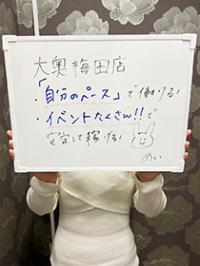 大奥梅田店
・「自分のペース」で働ける!
・イベントたくさん!!で
安定して稼げる!
めい